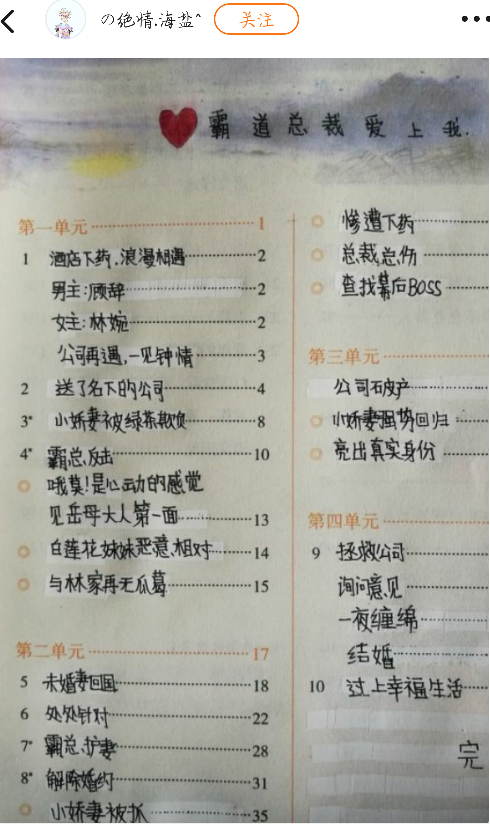 の绝情.海盐^
关注
霸道总裁爱上我.
第一单元 1
1 酒店下药.浪漫相遇 2
男主:顾辞 2
女主:林婉 2
公司再遇,一见钟情 3
2 送了名下的公司 4
3* 小娇妻被绿茶欺负 8
4* 霸总反击 10
哦莫!是心动的感觉
见岳母大人第一面 13
白莲花妹妹恶意相对 14
与林家再无瓜葛 15
第二单元 17
5 未婚妻回国 18
6 处处针对 22
7* 霸总护妻 28
8* 解除婚约 31
小娇妻被抓 35
惨遭下药
总裁总伤
查找幕后BOSS
第三单元
公司破产
小娇妻强势回归
亮出真实身份
第四单元
9 拯救公司
询问意见
一夜缠绵
结婚
10 过上幸福生活
完